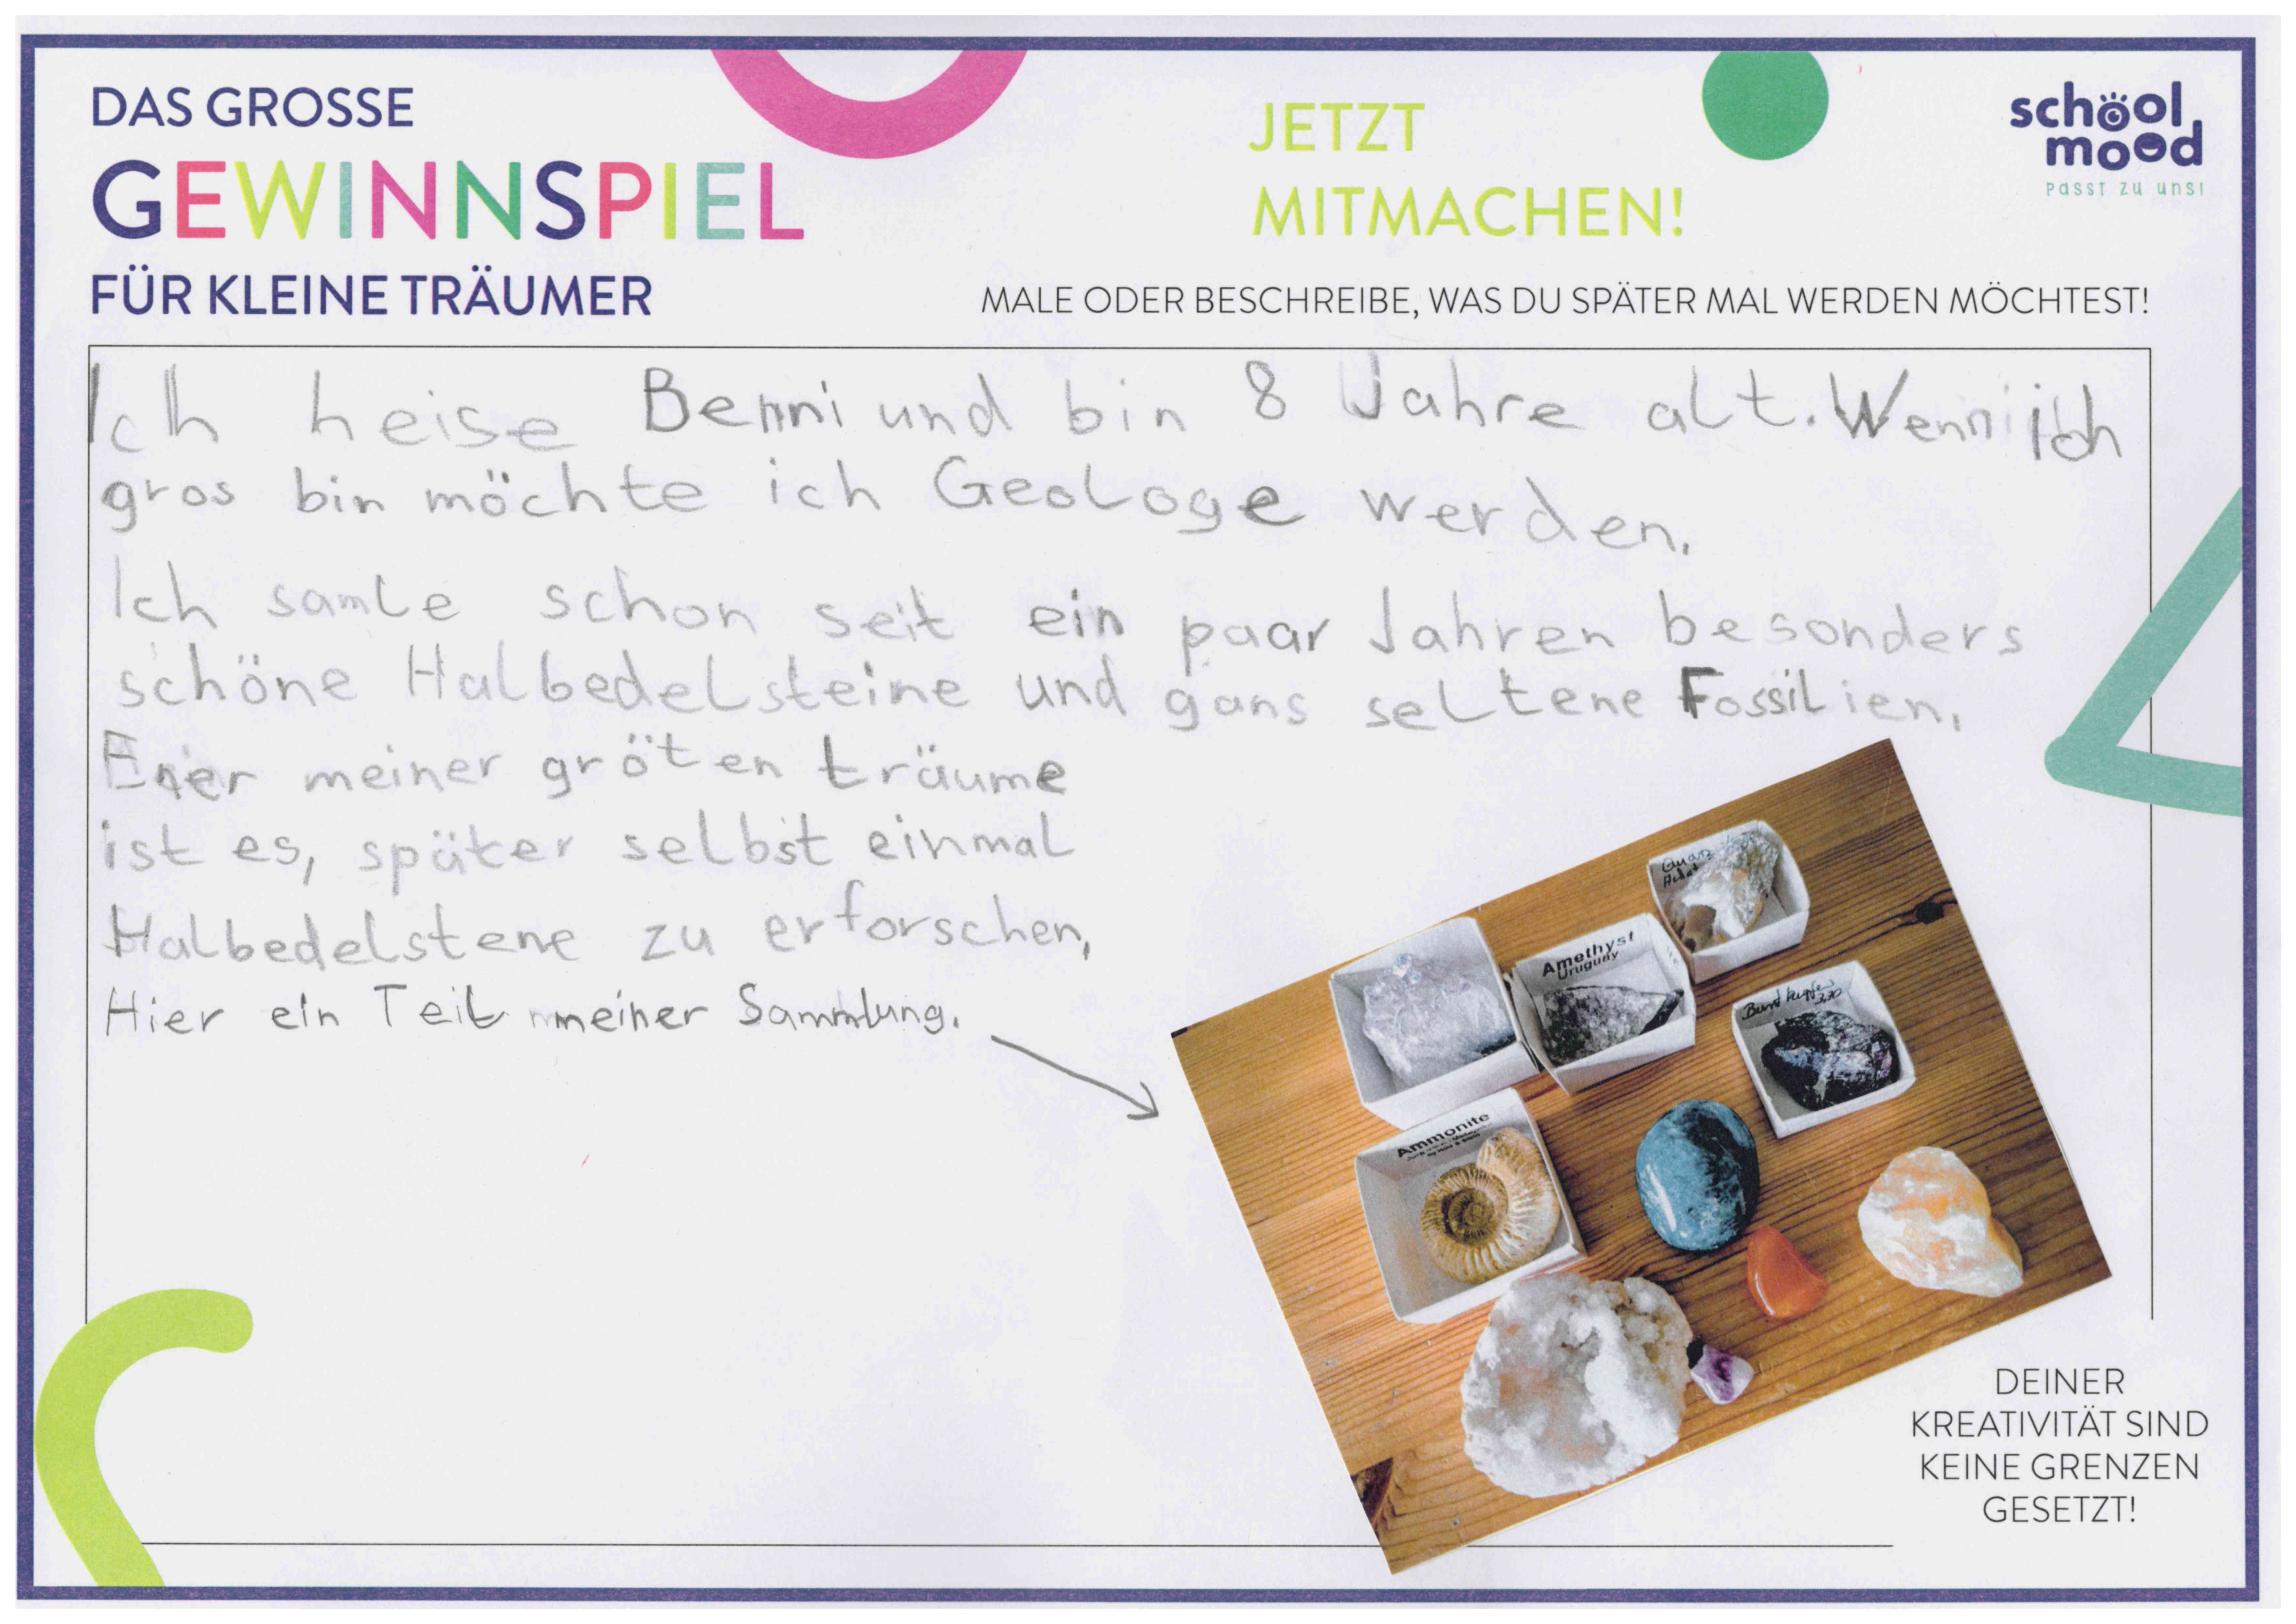 DAS GROSSE
GEWINNSPIEL
FÜR KLEINE TRÄUMER
JETZT
MITMACHEN!
school
mood
passt zu uns!
MALE ODER BESCHREIBE, WAS DU SPÄTER MAL WERDEN MÖCHTEST!
Ich heise Benni und bin 8 Jahre alt. Wenn ich
gros bin möchte ich Geologe werden.
Ich samle schon seit ein paar Jahren besonders
schöne Halbedelsteine und gans seltene Fossilien.
Einer meiner gröten träume
ist es, später selbst einmal
Halbedelstene zu erforschen,
Hier ein Teil meiner Sammlung.
Quarz
Amethyst
Uruguay
Buntkupfer
Ammonite
DEINER
KREATIVITÄT SIND
KEINE GRENZEN
GESETZT!